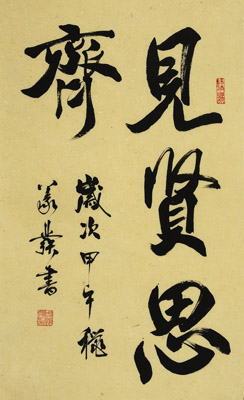 見賢思
齊
歲次甲午穐
書